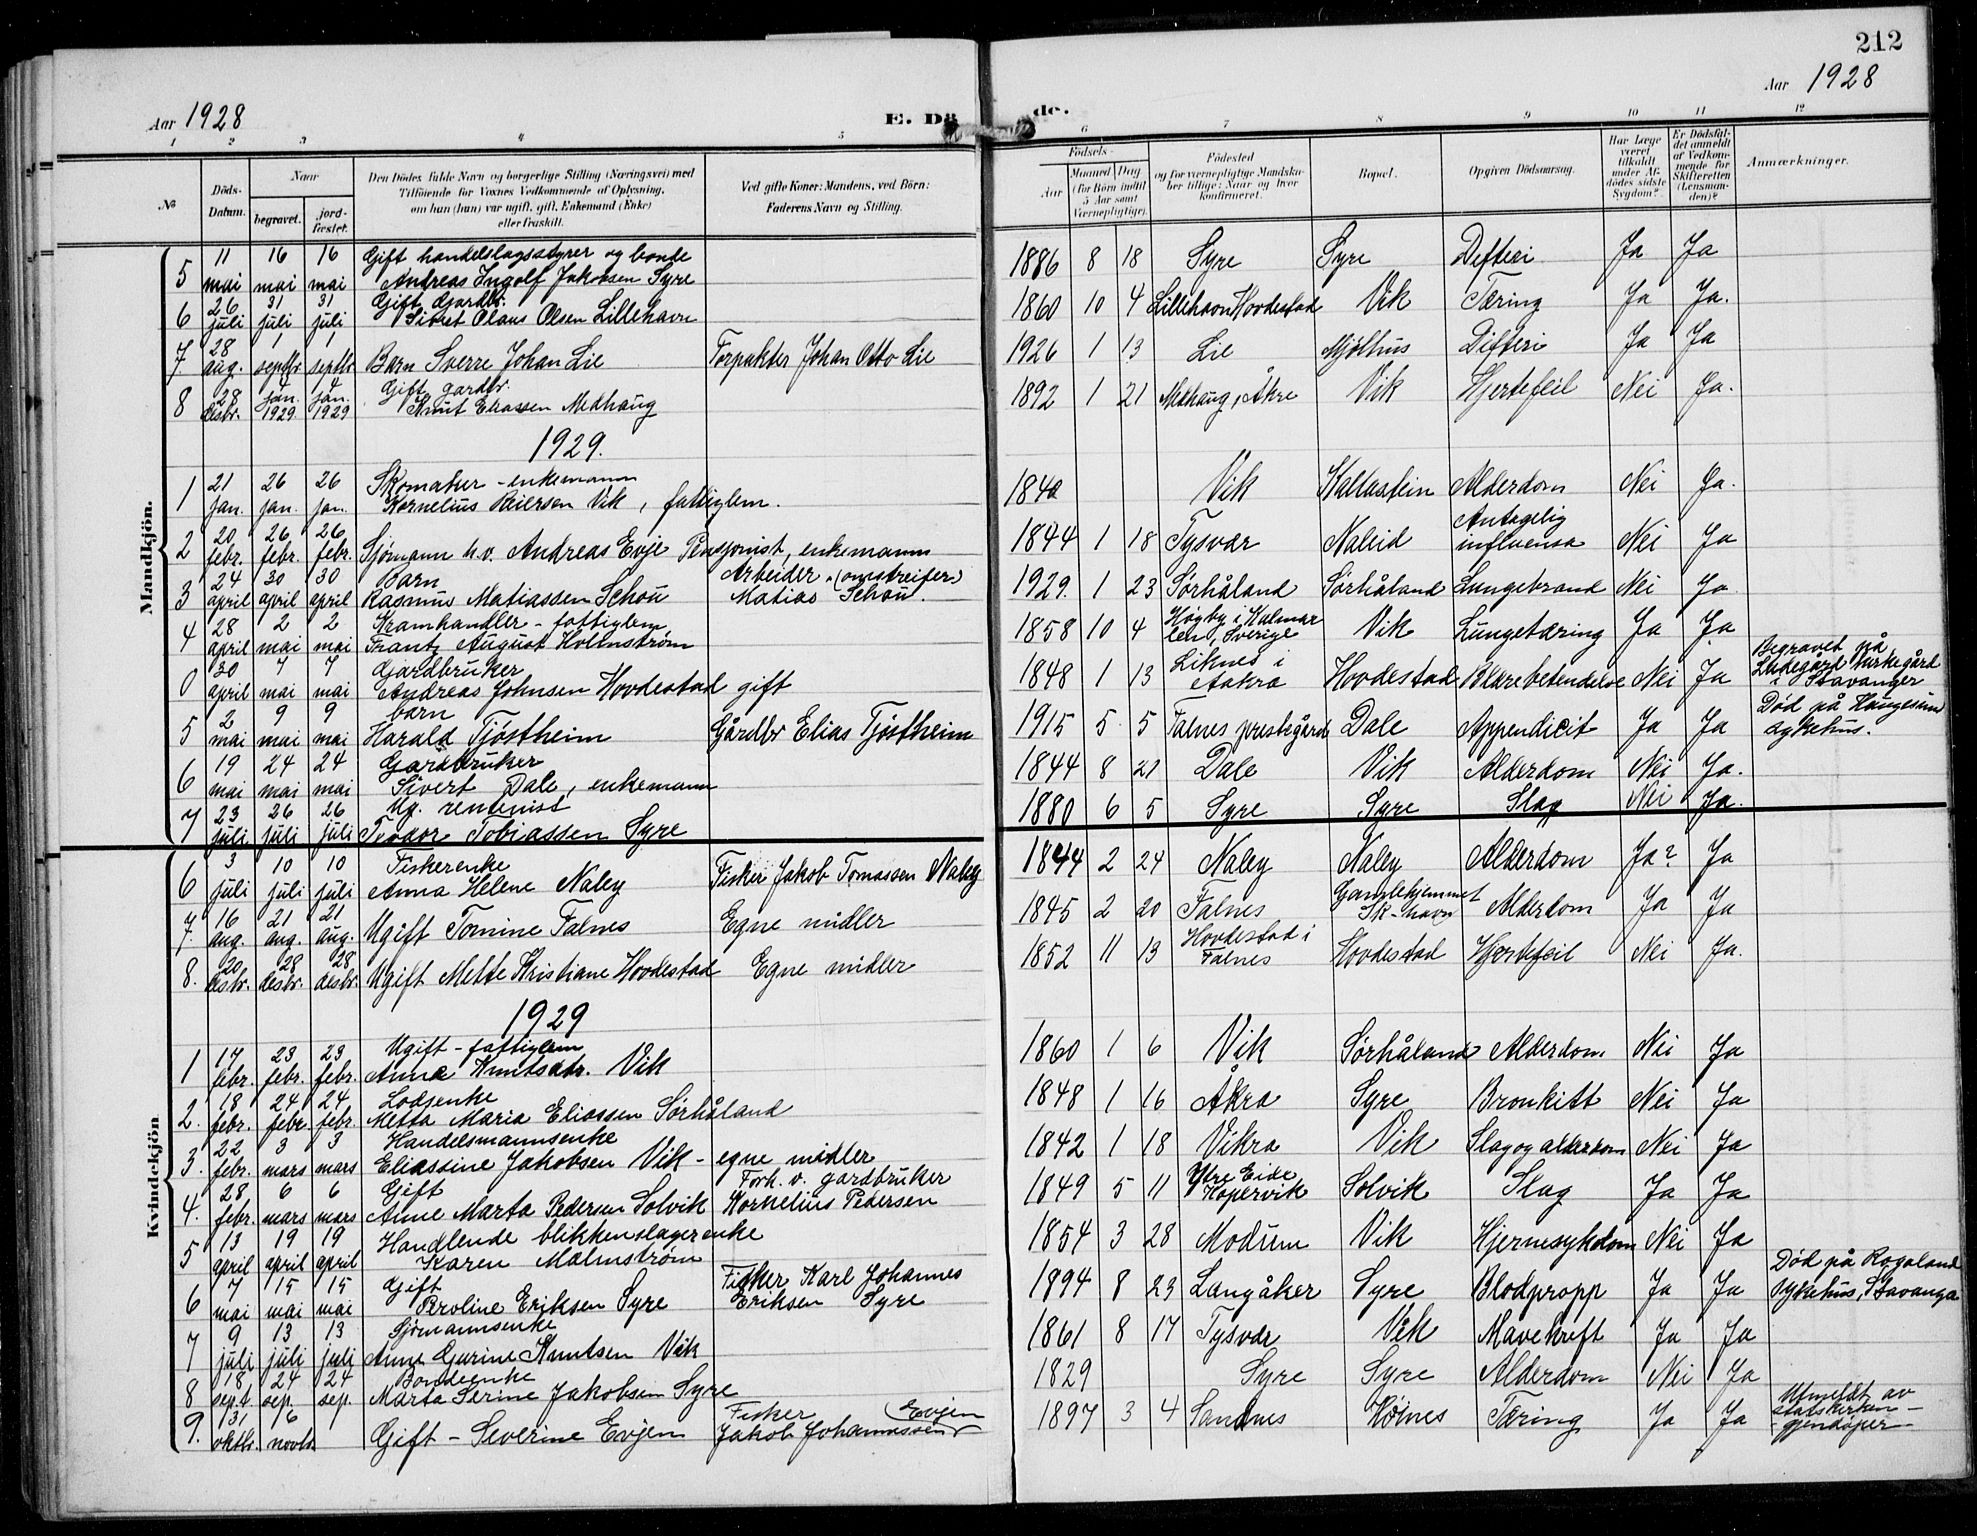 212
Aar 1928 E. Dö de. Aar 1928
1 2 3 4 5 6 7 8 9 10 11 12
№ Döds-Datum. Naar begravet. jord-fæstet. Den Dödes fulde Navn og borgerlige Stilling (Næringsvei) med Tilföiende for Voxnes Vedkommende af Oplysning, om han (hun) var ugift, gift, Enkemand (Enke) eller fraskilt. Ved gifte Koner: Mandens, ved Börn: Faderens Navn og Stilling. Födsels- Aar Maaned Dag (for Börn indtil 5 Aar samt Værnepligtige). Födested og for værnepligtige Mandskaber tillige: Naar og hvor konfirmeret. Bopæl. Opgiven Dödsaarsag. Har Læge været tilkaldt under Afdödes sidste Sygdom? Er Dödsfaldet anmeldt af Vedkommende for Skifteretten (Lensmanden)? Anmærkninger.
Mandkjön.
5 11 mai 16 mai 16 mai Gift handelslagsstyrer og bonde Andreas Ingolf Jakobsen Syre 1886 8 18 Syre Syre Difteri Ja Ja
6 26 juli 31 juli 31 juli Gift Gardbr. Sivert Olaus Olsen Lillehavn 1860 10 4 Lillehavn Hovdestad Vik Tæring Ja Ja.
7 28 aug. 1 septbr 1 septbr Barn Sverre Johan Lie Forpakter Johan Otto Lie 1926 1 13 Lie Mjölhus Difteri Ja Ja
8 28 desbr. 4 jan. 1929 4 jan. 1929 Gift gardbr. Knut Eliassen Medhaug 1892 1 21 Medhaug, Åkre Vik Hjertefeil Nei Ja.
1929.
1 21 jan. 26 jan. 26 jan. Skomaker - enkemann Kornelius Reiersen Vik, fattiglem. 1840 Vik Kallastein Alderdom Nei Ja.
2 20 febr. 26 febr. 26 febr. Sjømann h.v. Andreas Evje Pensjonist, enkemann 1844 1 18 Tysvær Naleid Antagelig influensa Nei Ja
3 24 april 30 april 30 april Barn Rasmus Matiassen Schou Arbeider (omstreifer) Matias Schou. 1929. 1 23 Sørhåland Sørhåland Lungebrand Nei Ja
4 28 april 2 mai 2 mai Kramhandler - fattiglem Frantz August Holmstrøm 1858 10 4 Høgby i Kalmar len, Sverige Vik Lungetæring Ja Ja
0 30 april 7 mai 7 mai Gardbruker Andreas Johnsen Hovdestad gift 1848 1 13 Liknes i Aakra Hovdestad Blærebetendelse Nei Ja Begravet på Ladegård kirkegård i Stavanger
5 2 mai 9 mai 9 mai barn Harald Tjøstheim Gårdbr Elias Tjøstheim 1915 5 5 Falnes prestegård Dale Appendicit Ja Ja Død på Haugesund sykehus.
6 19 mai 24 mai 24 mai Gardbruker Sivert Dale, enkemann 1844 8 21 Dale Vik Alderdom Nei Ja.
7 23 juli 26 juli 26 juli Ug. rentenist Teodor Tobiassen Syre 1880 6 5 Syre Syre Slag Nei Ja.
Kvindekjön
6 3 juli 10 juli 10 juli Fiskerenke Anna Helene Naley Fisker Jakob Tomassen Naley 1844 2 24 Naley Naley Alderdom Ja? Ja
7. 16 aug. 21 aug. 21 aug. Ugift Tomine Falnes Egne midler 1845 2 20 Falnes Gamlehjemmet Sk-havn Alderdom Ja Ja
8. 20 desbr. 28 desbr. 28 desbr. Ugift Mette Kristiane Hovdestad Egne midler 1852 11 13 Hovdestad i Falnes Hovdestad Hjertefeil Nei Ja.
1929
1 17 febr. 23 febr. 23 febr. Ugift - fattiglem Anna Knutsdtr. Vik 1860 1 6 Vik Sørhåland Alderdom Nei Ja
2. 18 febr. 24 febr. 24 febr. Losenke Metta Maria Eliassen Sørhåland 1848 1 16 Åkra Syre Bronkitt Nei Ja
3. 22 febr. 3 mars 3 mars Handelsmannsenke Eliassine Jakobsen Vik - egne midler 1842 1 18 Vikra Vik Slag og alderdom Nei Ja
4. 28 febr. 6 mars 6 mars Gift Anne Marta Pedersen Solvik Forh. v. gardbruker Kornelius Pedersen 1849 5 11 Ytre Eide Kopervik Solvik Slag Ja Ja
5 13 april 19 april 19 april Handlende blikkenslagerenke Karen Malmstrøm 1854 3 28 Modum Vik Hjernesykdom Nei Ja
6 7 mai 15 mai 15 mai Gift Peroline Eriksen Syre Fisker Karl Johannes Eriksen Syre 1894 8 23 Langåker Syre Blodpropp Ja Ja Død på Rogaland sykehus, Stavanger
7 9 juli 13 juli 13 juli Sjømannsenke Anne Gurine Knutsen Vik 1861 8 17 Tysvær Vik Mavekreft Ja Ja
8 18 sept. 24 sep. 24 sep. Bondeenke Marta Serine Jakobsen Syre 1829 Syre Syre Alderdom Nei Ja
9. 31 oktbr. 6 novbr. Gift - Severine Evjen Fisker Jakob Johannessen Evjen 1897 3 4 Sandnes Hølnes Tæring Ja Ja Utmeldt av statskirken - gjendøper -